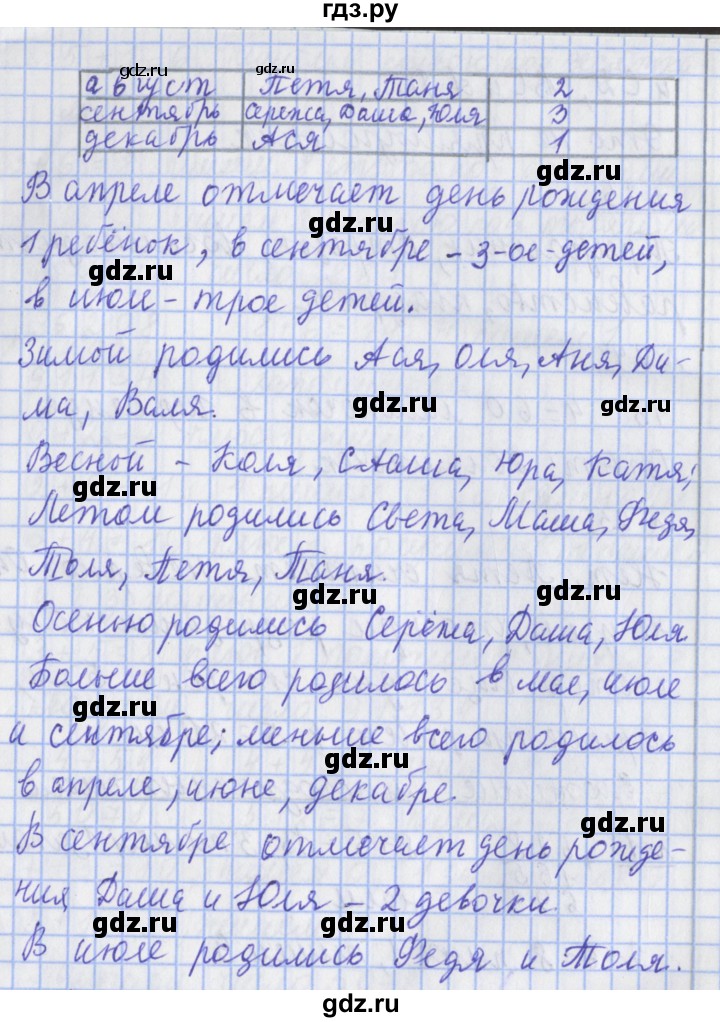 гдз.ру
август Петя, Таня 2
сентябрь Сережа, Даша, Юля 3
декабрь Ася 1
В апреле отмечает день рождения
1 ребёнок, в сентябре - 3-ое-детей,
в июле - трое детей.
Зимой родились Ася, Оля, Аня, Ди-
ма, Валя.
Весной - Коля, Саша, Юра, Катя;
Летом родились Света, Маша, Федя,
Толя, Петя, Таня.
Осенью родились Серёжа, Даша, Юля
Больше всего родилось в мае, июле
и сентябре; меньше всего родилось
в апреле, июне, декабре.
В сентябре отмечает день рожде-
ния Даша и Юля - 2 девочки.
В июле родились Федя и Толя.
gdz.ru